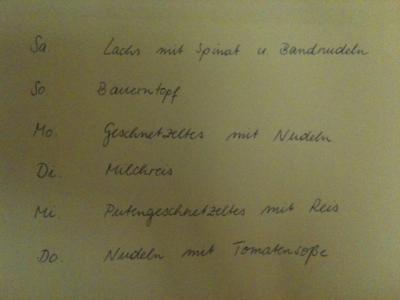 Sa Lachs mit Spinat u. Bandnudeln
So. Bauerntopf
Mo. Geschnetzeltes mit Nudeln
Di. Milchreis
Mi. Putengeschnetzeltes mit Reis
Do. Nudeln mit Tomatensoße